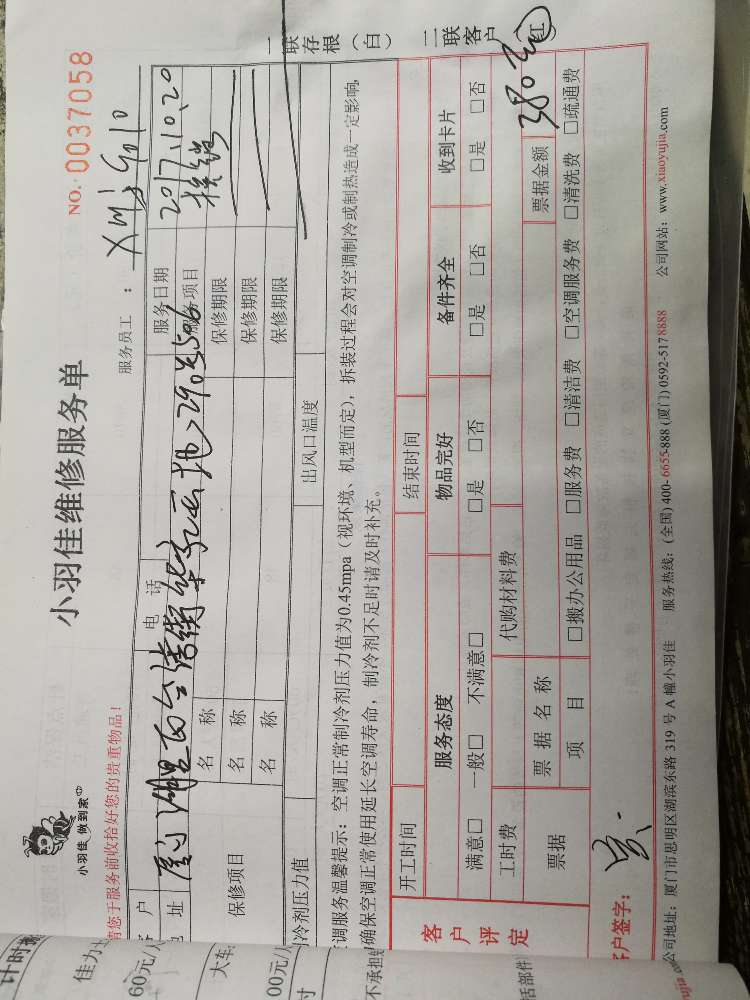 小羽佳维修服务单
小羽佳 做到家
NO. 0037058
请您于服务前收拾好您的贵重物品!
服务员工 :
客 户
电 话
服务日期
2017.10.20
地 址
服务项目
保修项目
名 称
保修期限
名 称
保修期限
名 称
保修期限
冷剂压力值
出风口温度
调服务温馨提示: 空调正常制冷剂压力值为0.45mpa (视环境、机型而定), 拆装过程会对空调制冷或制热造成一定影响,
确保空调正常使用延长空调寿命, 制冷剂不足时请及时补充。
一联存根(白)
二联客户(红)
客户评定
开工时间
结束时间
服务态度
物品完好
备件齐全
收到卡片
满意□ 一般□ 不满意□
□是 □否
□是 □否
□是 □否
工时费
代购材料费
票据
票 据 名 称
票据金额
380元
项 目
□搬办公用品 □服务费 □清洁费 □空调服务费 □清洗费 □疏通费
客户签字:
公司地址: 厦门市思明区湖滨东路 319 号 A 幢小羽佳 服务热线: (全国) 400-6655-888 (厦门) 0592-5178888 公司网站: www.xiaoyujia.com
计时
佳力
60元/
大车
00元/
寸
不承担
活部件